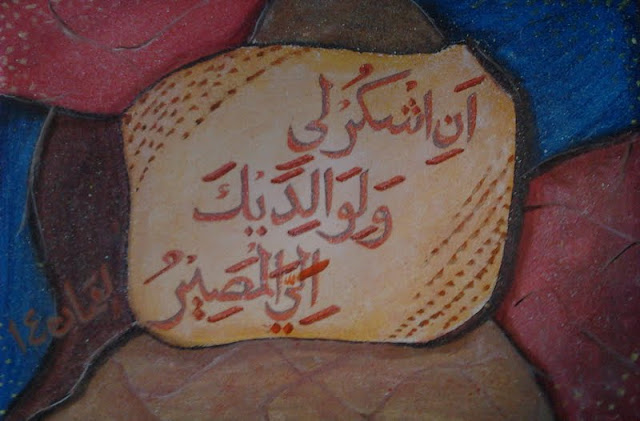 اَنِ اشْكُرْ لِي
وَلِوَالِدَيْكَ
اِلَيَّ الْمَصِيْرُ
لقمان ١٤